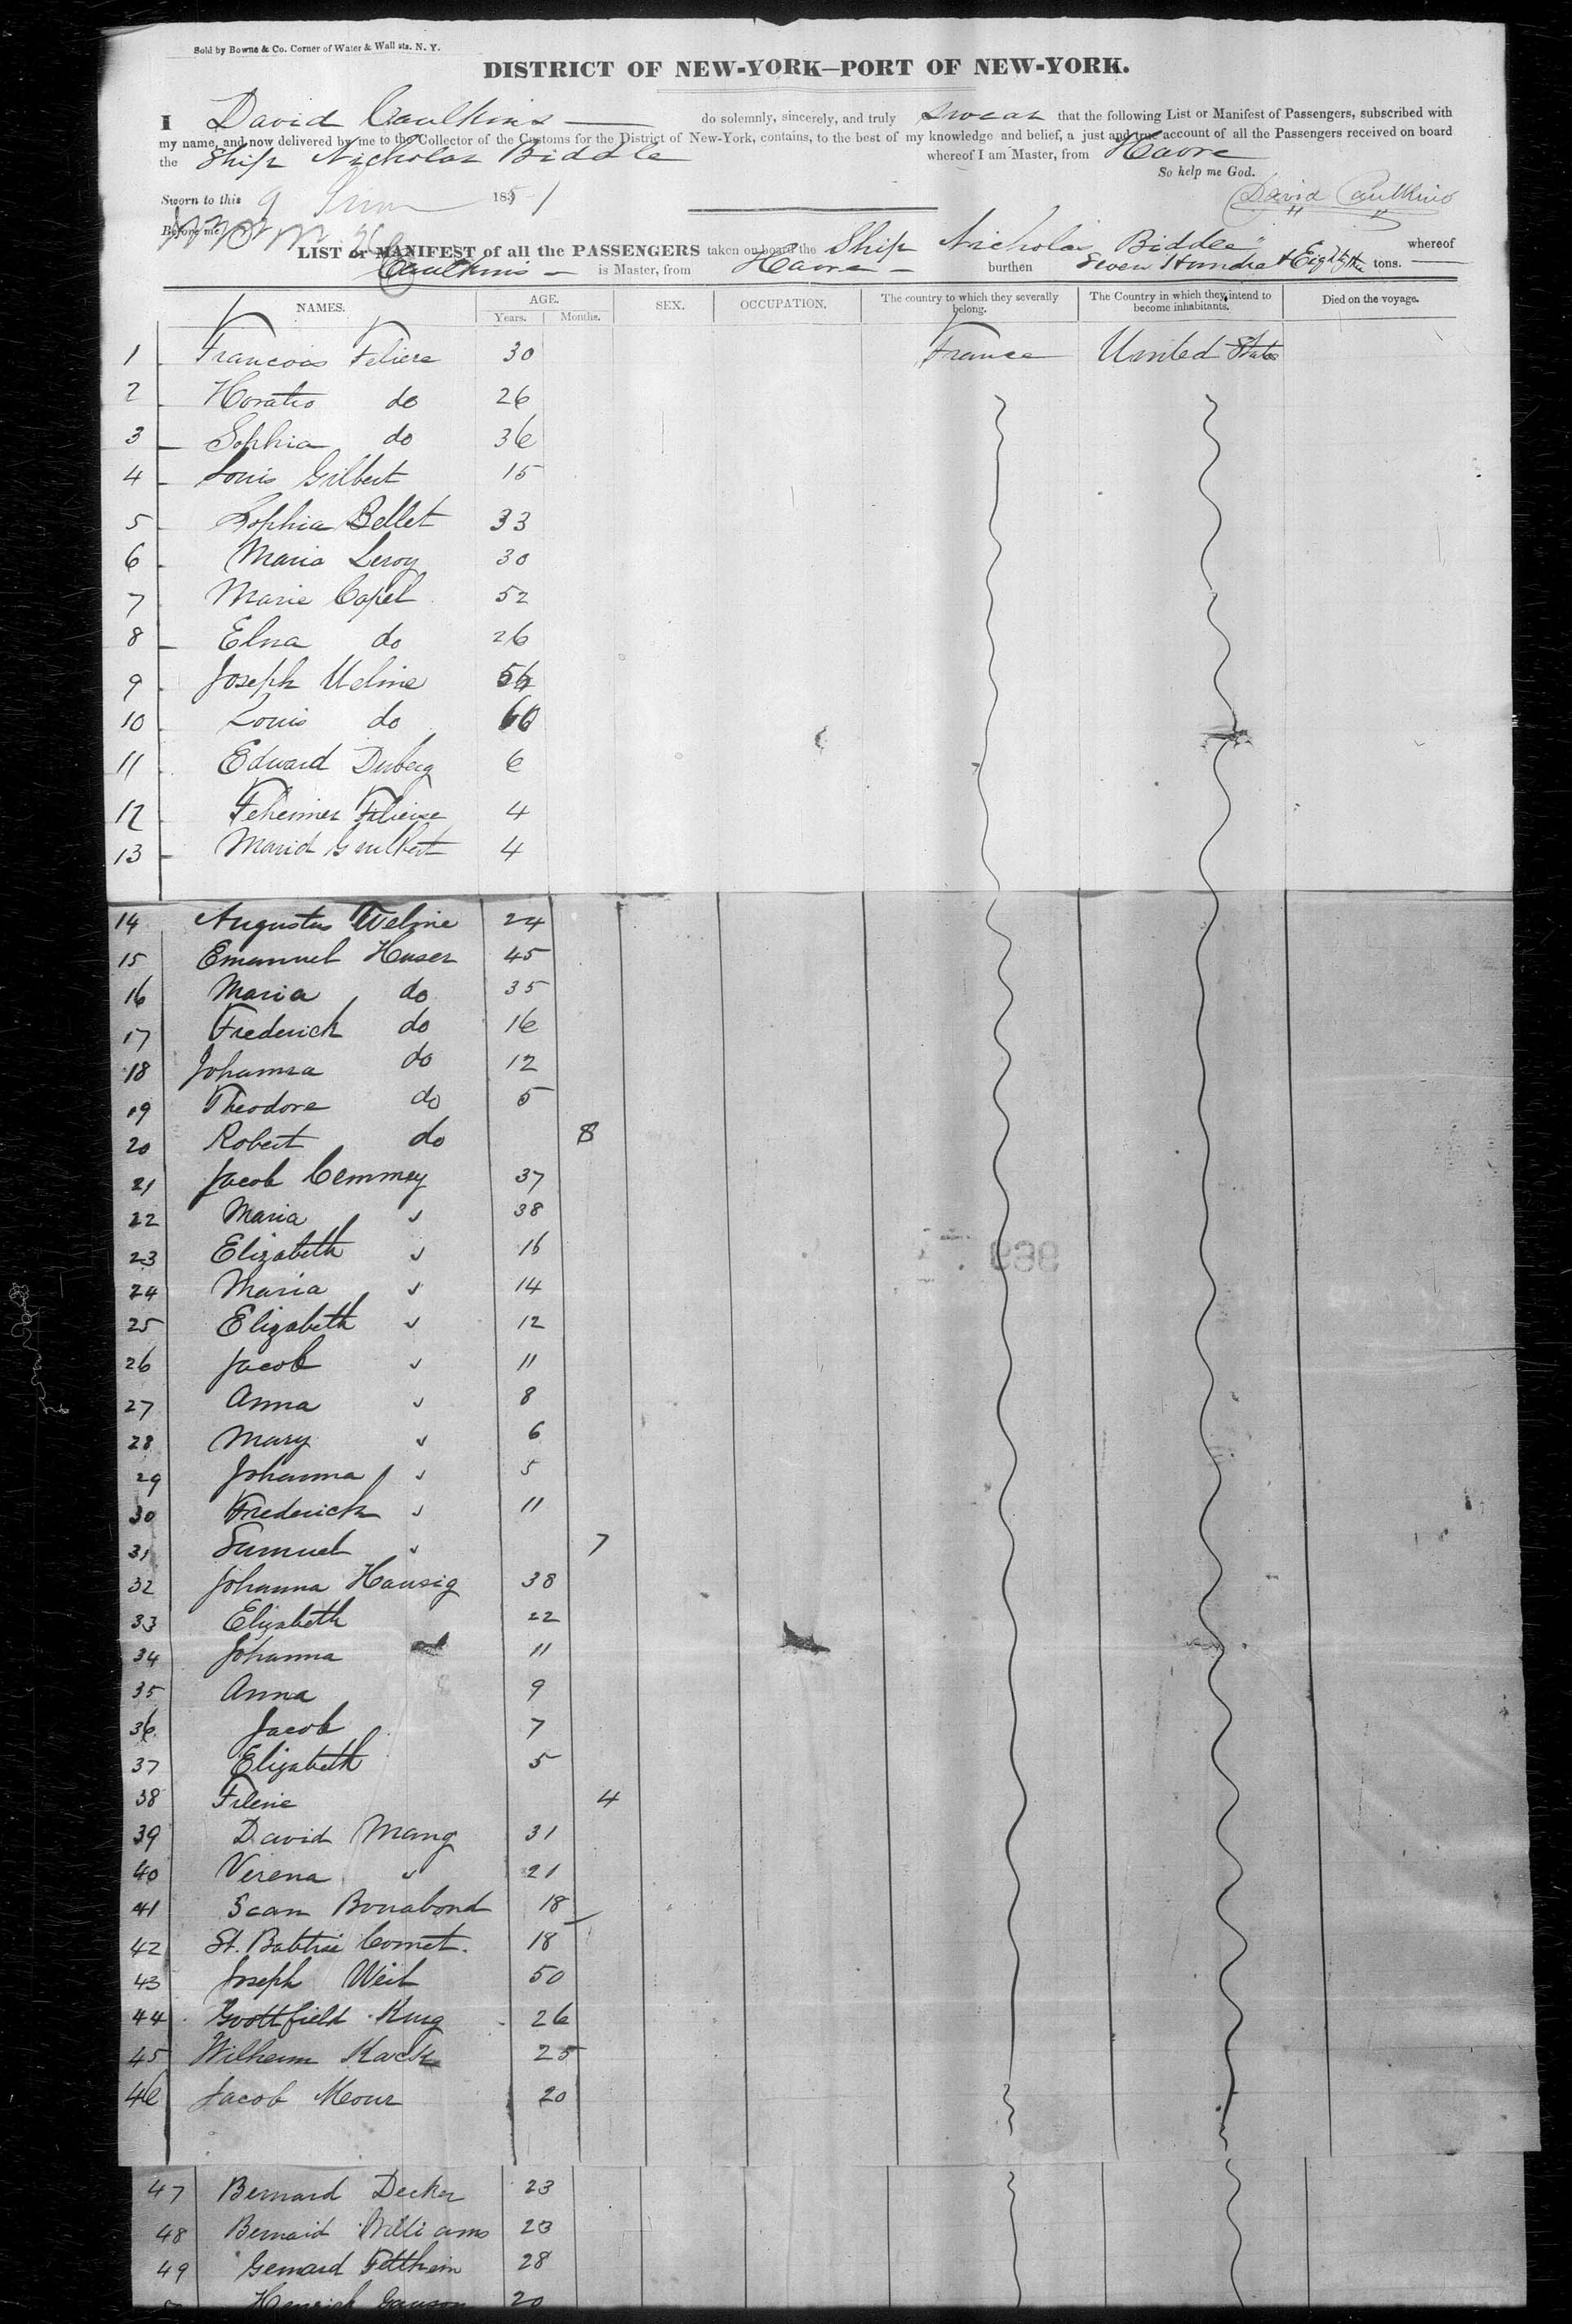 Sold by Bowne & Co. Corner of Water & Wall sts. N. Y.
DISTRICT OF NEW-YORK—PORT OF NEW-YORK.
I David Caulkins do solemnly, sincerely, and truly swear that the following List or Manifest of Passengers, subscribed with
my name, and now delivered by me to the Collector of the Customs for the District of New-York, contains, to the best of my knowledge and belief, a just and true account of all the Passengers received on board
the Ship Nicholas Biddle whereof I am Master, from Havre
So help me God.
Sworn to this 9 June 1851
David Caulkins
Before me
LIST or MANIFEST of all the PASSENGERS taken on board the Ship Nicholas Biddle whereof
Caulkins is Master, from Havre burthen Seven Hundred & Eighty tons.
NAMES. AGE. SEX. OCCUPATION. The country to which they severally belong. The Country in which they intend to become inhabitants. Died on the voyage.
Years. Months.
1 Francois Filiere 30 France United States
2 Horatio do 26
3 Sophia do 36
4 Louis Gilbert 15
5 Sophia Bellet 33
6 Maria Leroy 30
7 Marie Capel 52
8 Elna do 26
9 Joseph Ueline
10 Louis do 60
11 Edward 6
12 Filiere 4
13 4
14 Augustus 24
15 Emanuel Huser 45
16 Maria do 35
17 Frederick do 16
18 Johanna do 12
19 Theodore do 5
20 Robert do 8
21 Jacob Cemmey 37
22 Maria " 38
23 Elizabeth " 16
24 Maria " 14
25 Elizabeth " 12
26 Jacob " 11
27 Anna " 8
28 Mary " 6
29 Johanna " 5
30 Frederick " 11
31 Samuel " 7
32 Johanna Hausig 38
33 Elizabeth 22
34 Johanna 11
35 Anna 9
36 Jacob 7
37 Elizabeth 5
38 Filene 4
39 David Mang 31
40 Verena " 21
41 Bonabond 18
42 St. Babtise Comet. 18
43 Joseph Weil 50
44 Gottfield King 26
45 Wilhem Kack 25
46 Jacob Mour 20
47 Bernard Decker 23
48 Bernard Williams 23
49 Gernard Feltheim 28
50 Henrich 20